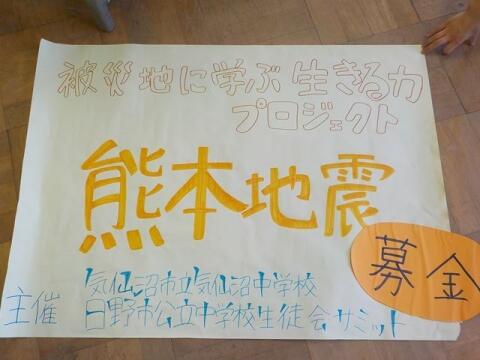 被災地に学ぶ生きる力
プロジェクト
熊本地震
募金
気仙沼市立気仙沼中学校
主催 日野市公立中学校生徒会サミット